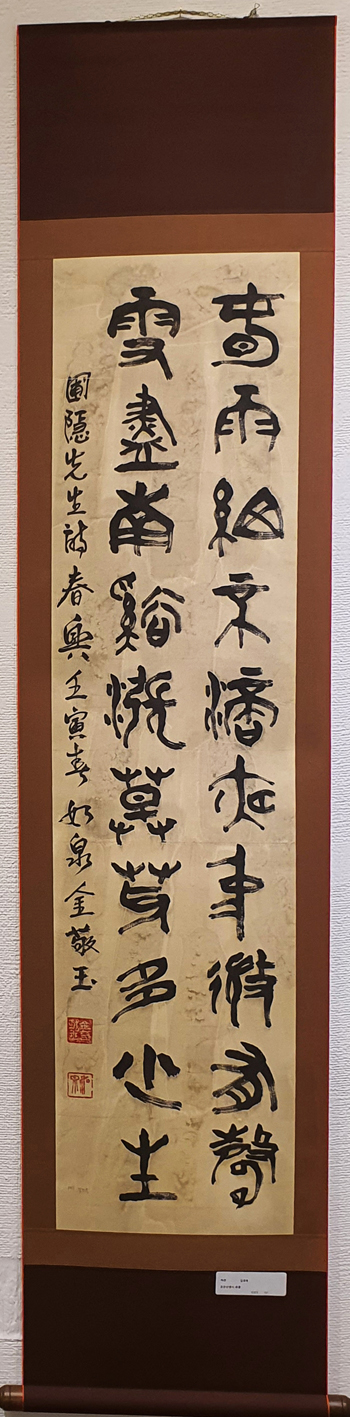 春雨細不滴夜中微有聲
雪盡南谿漲草芽多少生
圃隱先生詩春興壬寅春如泉金敬玉